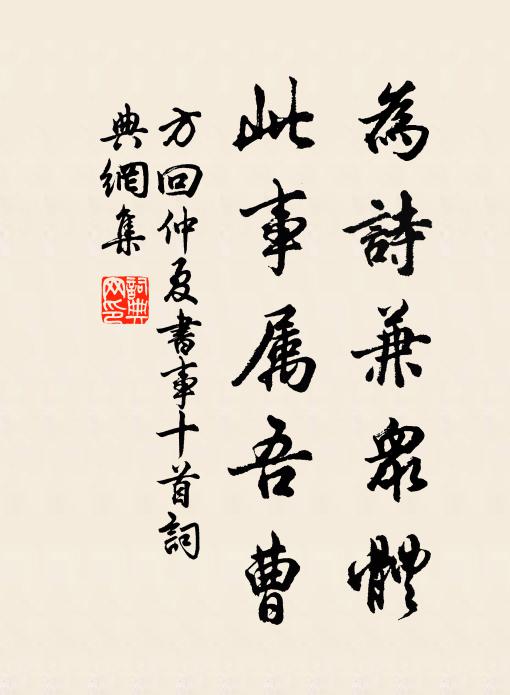 為詩兼眾體
此事属吾曹
方回仲夏書事十首詞
典網集
詞典
网印